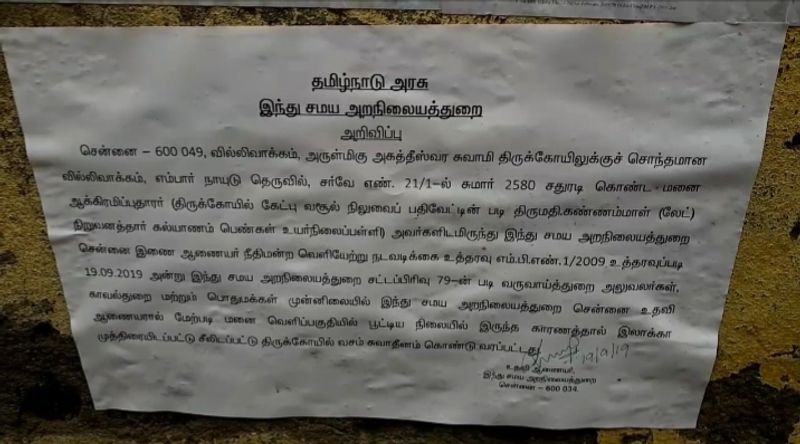 தமிழ்நாடு அரசு
இந்து சமய அறநிலையத்துறை
அறிவிப்பு
சென்னை – 600 049, வில்லிவாக்கம், அருள்மிகு அகத்தீஸ்வர சுவாமி திருக்கோயிலுக்குச் சொந்தமான
வில்லிவாக்கம், எம்பார் நாயுடு தெருவில், சர்வே எண். 21/1–ல் சுமார் 2580 சதுரடி கொண்ட மனை
ஆக்கிரமிப்புதாரர் (திருக்கோயில் கேட்பு வசூல் நிலுவைப் பதிவேட்டின் படி திருமதி.கண்ணம்மாள் (லேட்)
நிறுவனத்தார் கல்யாணம் பெண்கள் உயர்நிலைப்பள்ளி) அவர்களிடமிருந்து இந்து சமய அறநிலையத்துறை
சென்னை இணை ஆணையர் நீதிமன்ற வெளியேற்று நடவடிக்கை உத்தரவு எம்.பி.எண்.1/2009 உத்தரவுப்படி
19.09.2019 அன்று இந்து சமய அறநிலையத்துறை சட்டப்பிரிவு 79–ன் படி வருவாய்த்துறை அலுவலர்கள்,
காவல்துறை மற்றும் பொதுமக்கள் முன்னிலையில் இந்து சமய அறநிலையத்துறை சென்னை உதவி
ஆணையரால் மேற்படி மனை வெளிப்பகுதியில் பூட்டிய நிலையில் இருத்த காரணத்தால் இலாக்கா
முத்திரையிடப்பட்டு சீலிடப்பட்டு திருக்கோயில் வசம் சுவாதீனம் கொண்டு வரப்பட்டது
19/9/19
உதவி ஆணையர்,
இந்து சமய அறநிலையத்துறை
சென்னை – 600 034.